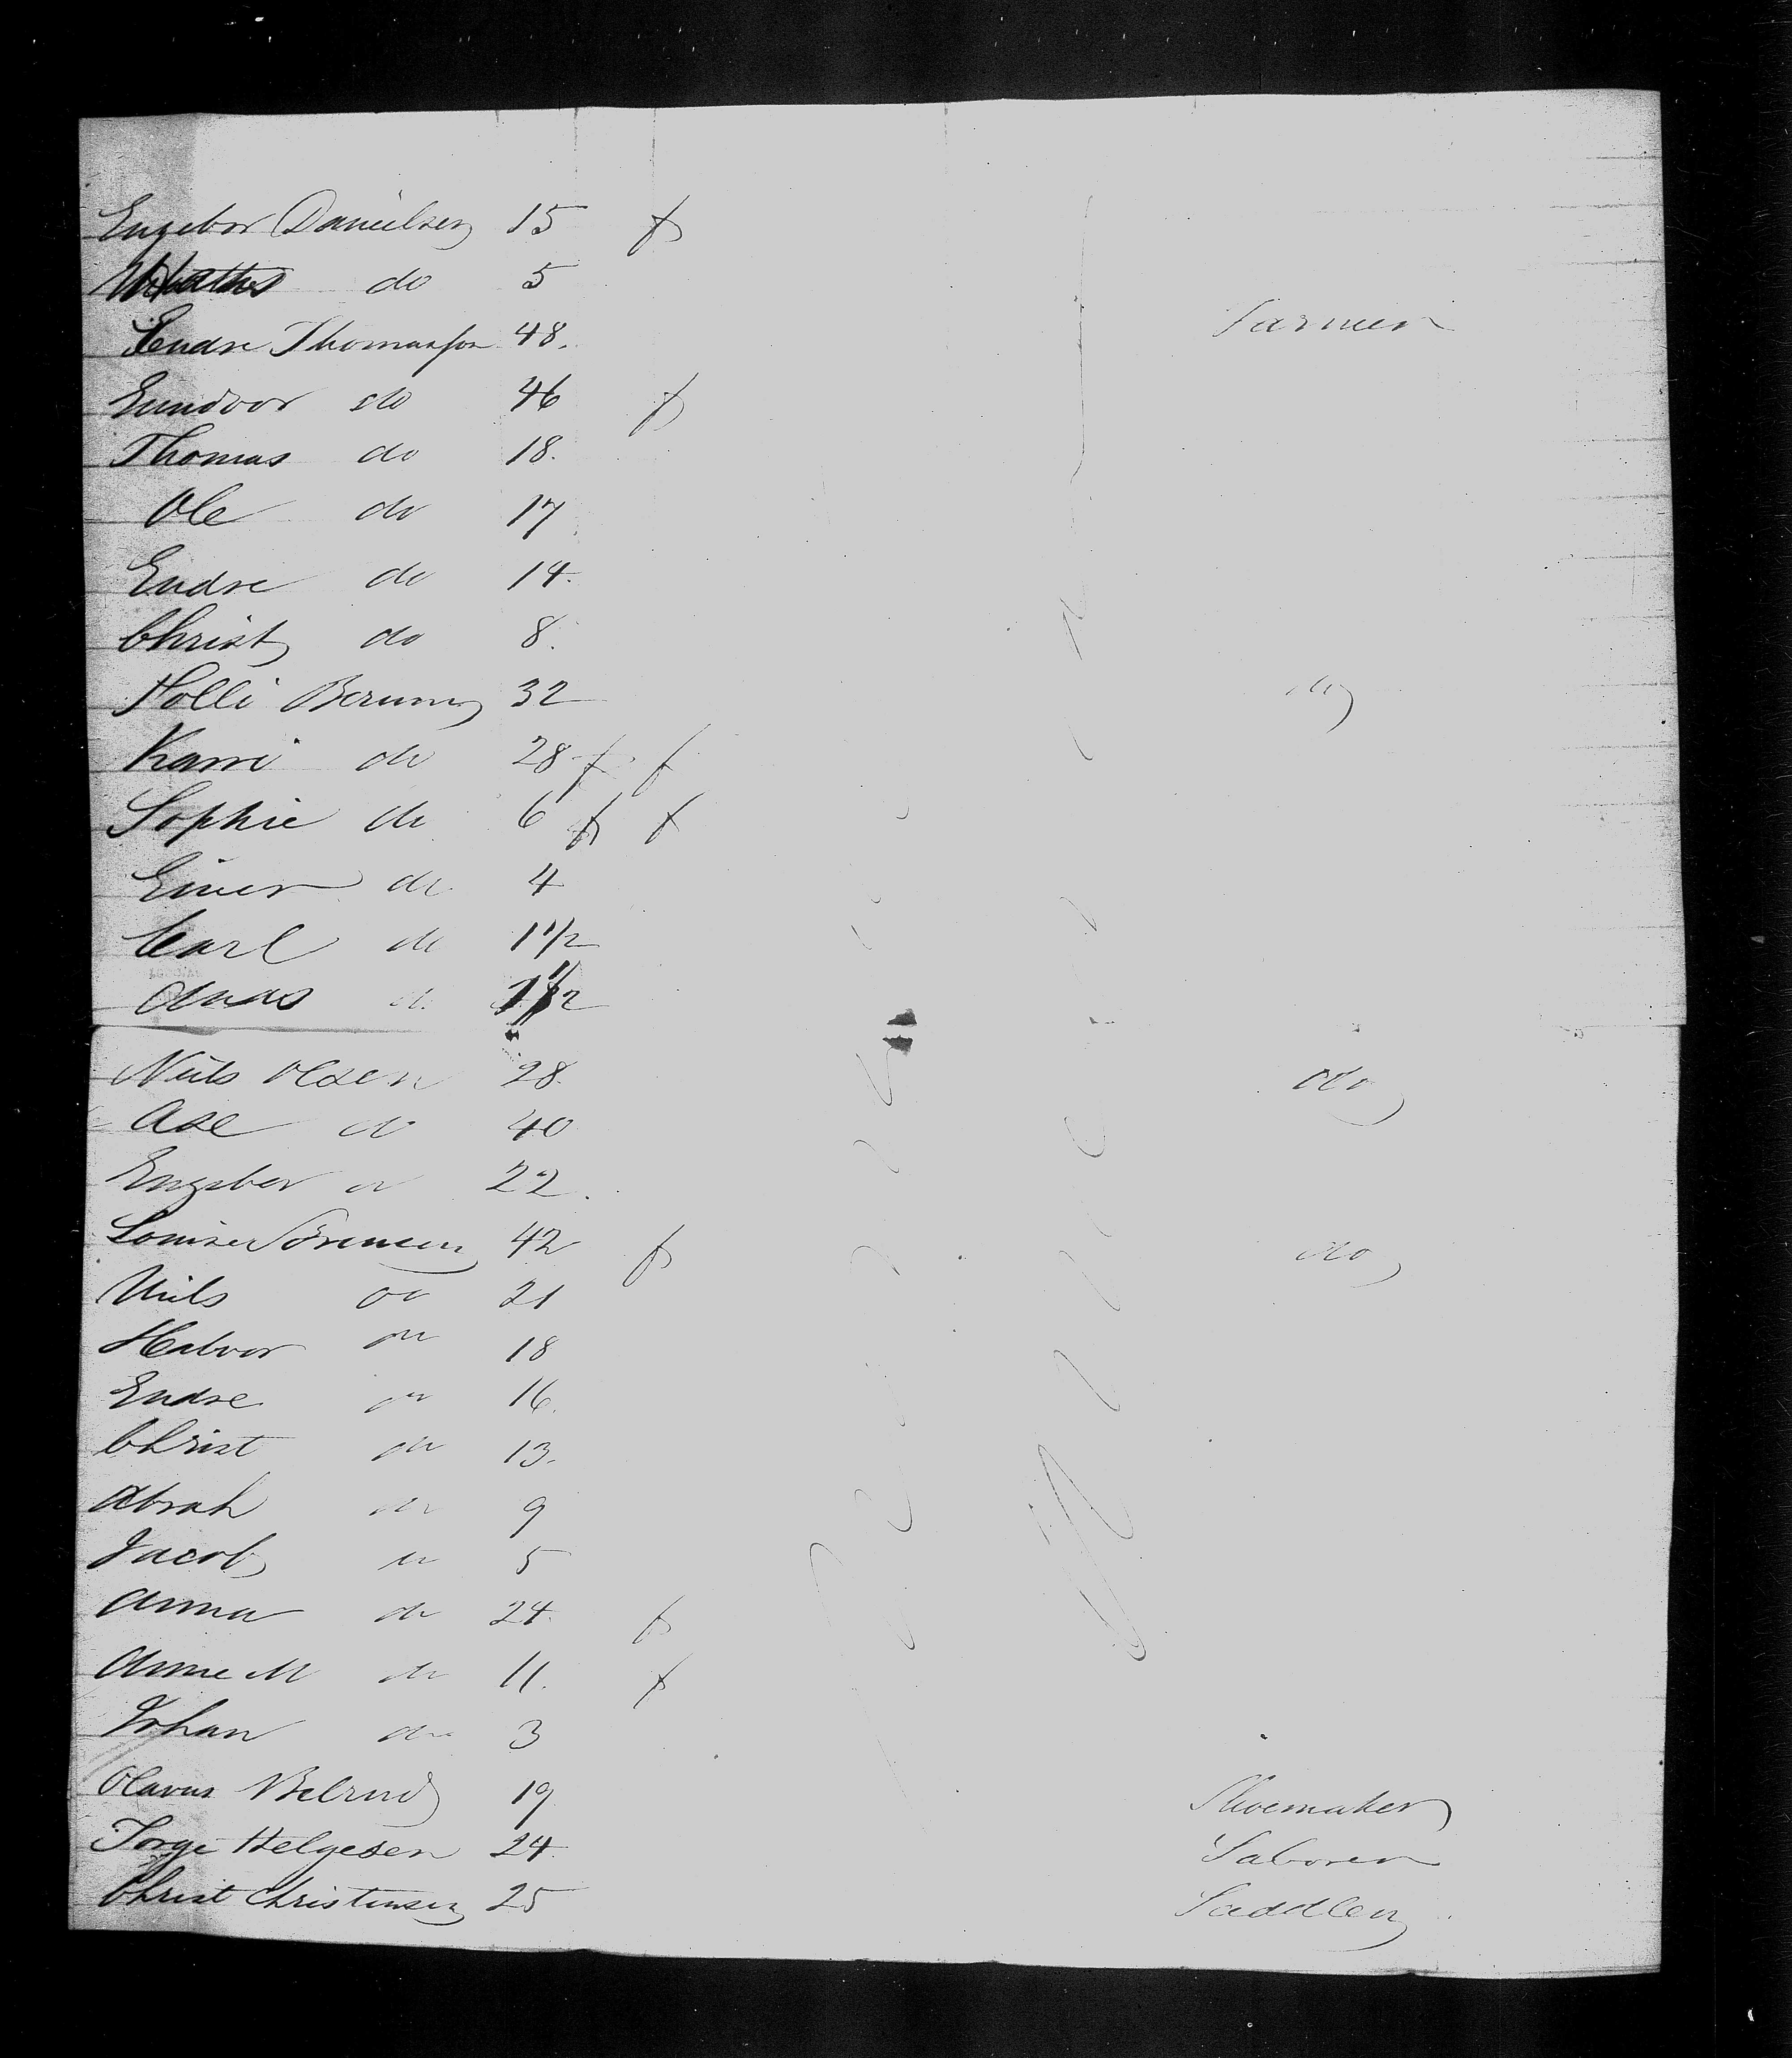 Engebor Danielsen 15 f
Mathes do 5
Endre Thomasson 48. Farmer
Gundvor do 46 f
Thomas do 18.
Ole do 17
Endre do 14.
Christ do 8.
Holli Berum 32 do
Karri do 28 f f
Sophie do 6 f f
Einer do 4
Carl do 1 1/2
Anas do 1 1/2
Niels Olsen 28. do
Ase do 40
Engeber do 22.
Louise Sörensen 42 f do
Nils do 21
Halvor do 18
Endre do 16.
Christ do 13.
Abrah do 9
Jacob do 5
Anna do 24. f
Anne M do 11. f
Johan do 3
Olavus Belrud 19 Shoemaker
Torge Helgesen 24. Laborer
Christ Christensen 25 Saddler